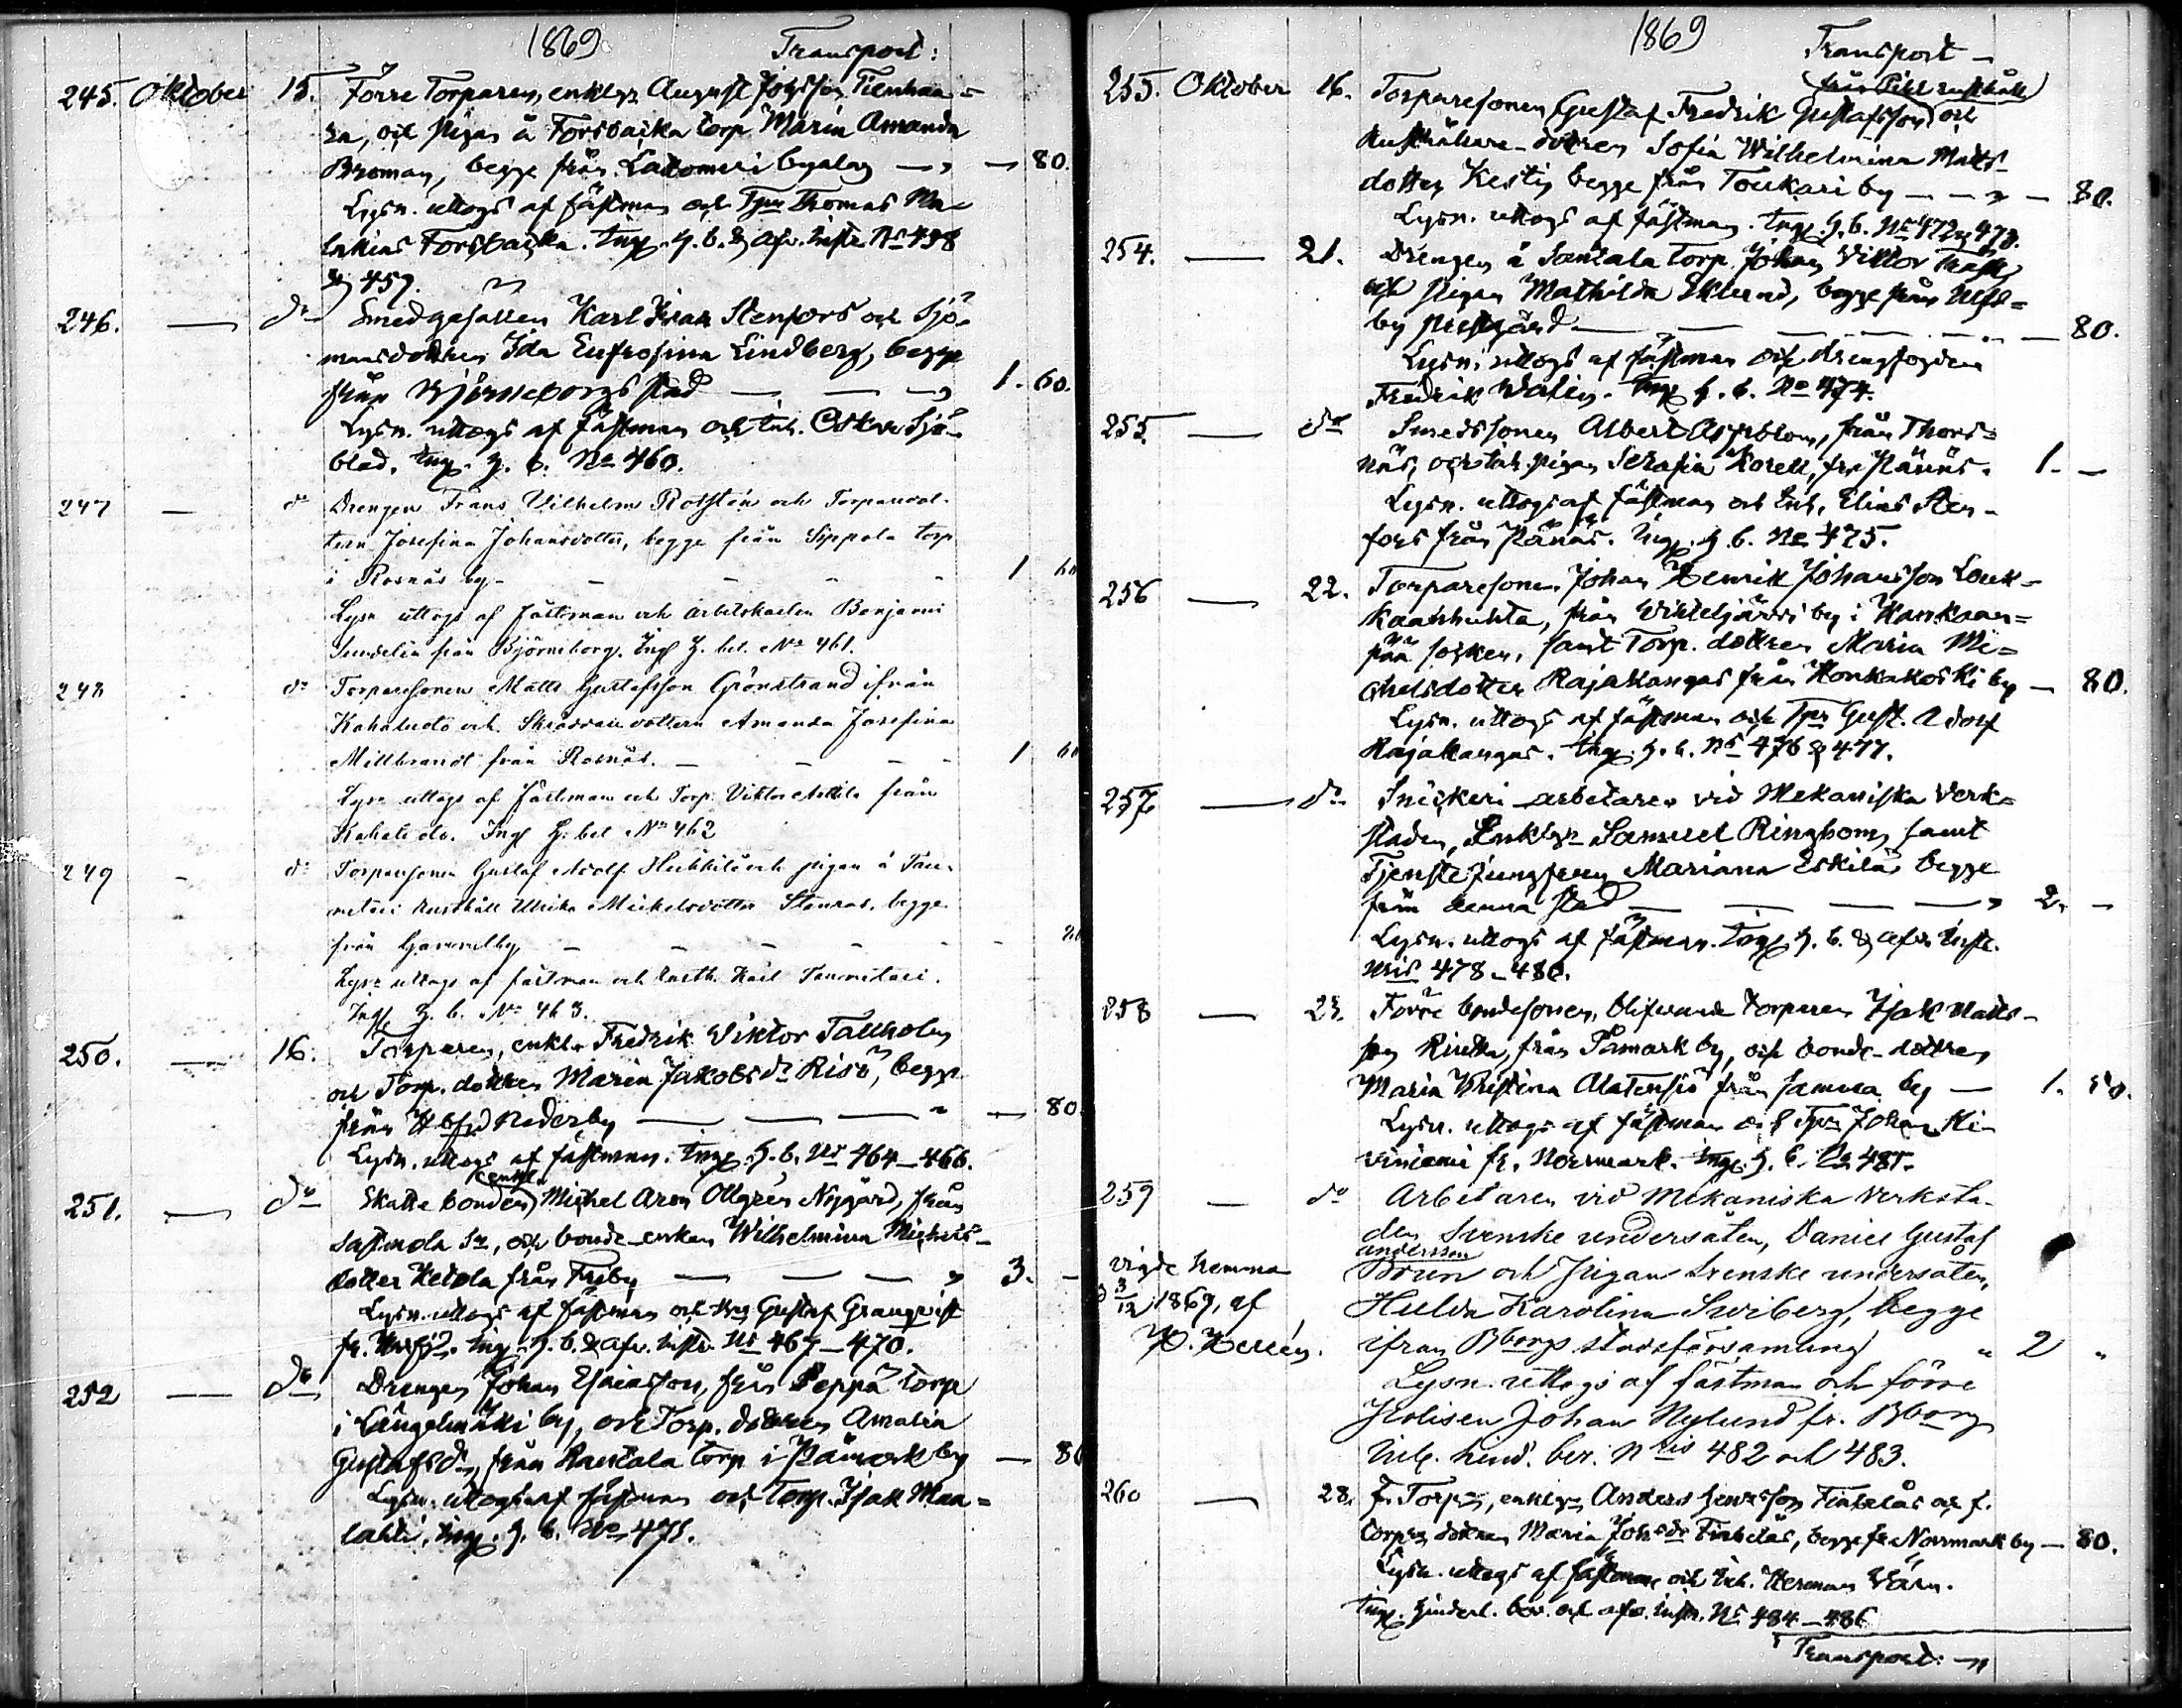 1869
Transport:
245. Oktober 15. Förre Torparen, enkling August Johsson Tienhaa-
ra, och pigan å Forsbacka torp Maria Amanda
Broman, begge från Lattomeri bylag — 80.
Lysn. uttogs af fästman och Tpr Thomas Ma-
lakias Forsbacka. Ing. H. b. & afv. instr. No 458
& 459.
246. — do Smedgesällen Karl Stenfors och Sjö-
mansdottren Ida Eufrosina Lindberg, begge
från Björneborgs stad — — 1. 60.
Lysn. uttogs af fästman och Oskar Sjö-
blad. Ing. H. b. No 460.
247 — do Drengen Frans Vilhelm Rotstén och Torparedot-
tern Josefina Johansdotter, begge från Sippola torp
i Rosnäs by - - - - 1 60
Lysn uttogs af fästman och arbetskarlen Benjami
Sundelin från Björneborg. Ingf H. bet. No 461.
248 - do Torparesonen Matts Gustafsson Grönstrand ifrån
Kahaluoto och Skräddaredottern Amanda Josefina
Millbrandt från Rosnäs. - - - 1 60
Lysn uttogs af fästman och Torp. Viktor Anttila från
Kahaluoto. Ingf H. bet No 462
249 - do Torparesonen Gustaf Adolf Heikkilä och pigan å Tau-
nitari rusthåll Ulrika Mickelsdotter Stenroos, begge
från Gammelby - - - - - 80
Lysn uttogs af fästman och Rusth. Karl Taunitari.
Ingf H. b. No 463.
250. — 16. Torparen, enkl. Fredrik Viktor Tallholm
och Torp. dottren Maria Jakobsdr Risö, begge
från Hvfd Nederby — — — 80
Lysn. uttogs af fästman. Ing. H. b. No 464-466.
251. — do Skattebonden (enkl.) Michel Aron Ollgrén Nygård, från
Sastmola Sn, och bonde-enkan Wilhelmina Michels-
dotter Ketola från Friby — — — 3. -
Lysn. uttogs af fästman och Gustaf Granqvist
fr. Hvfd. Ing. H. b. & afv. instr. No 467-470.
252 — do Drengen Johan Esaiasson, från Peppa torp
i Längelmäki by, och Torp. dottren Amalia
Gustafsdr, från Rantala torp i Påmark by — 80
Lysn. uttogs af fästman och Torp. Isak Maa-
lahti. Ing. H. b. No 471.
1869
Transport —
253. Oktober 16. Torparesonen Gustaf Fredrik Gustafsson (från Pihl rusthåll) och
Rusthållare-dottren Sofia Wilhelmina Matts-
dotter Kesti, begge från Toukari by — — — 80.
Lysn. uttogs af fästman. Ing. H. b. No 472 & 473.
254. — 21. Drengen å Santala torp Johan Viktor Träsk
och pigan Mathilda Eklund, begge från Ulfs-
by prestgård — — — 80.
Lysn. uttogs af fästman och drengfogden
Fredrik Walin. Ing. H. b. No 474.
255 — do Smedssonen Albert Aspblom, från Thors-
näs, och pigan Serafia Korell, fr. Pänäs. 1. -
Lysn. uttogs af fästman och Inh. Elias Sten-
fors från Pänäs. Ing. H. b. No 475.
256 — 22. Torparesonen Johan Henrik Johansson Louk-
kaanhuhta, från Wihteljärvi by i Kankaan-
pää socken, samt Torp. dottren Maria Mi-
chelsdotter Rajakangas från Honkakoski by — 80.
Lysn. uttogs af fästman och Tpr Gust. Adolf
Rajakangas. Ing. H. b. No 476 & 477.
257 — do Snickeri-arbetaren vid Mekaniska Verk-
staden, Enkl. Samuel Ringbom, samt
Tjenstejungfrun Mariana Eskilä, begge
från denna stad — — — 2. -
Lysn. uttogs af fästman. Ing. H. b. & afv. instr.
Nris 478-480.
258 — 23. Förre bondesonen, blifvande torparen Isak Matts-
son Rintta, från Påmark by, och bonde-dottren
Maria Kristina Alatensiö från samma by — 1. 50.
Lysn. uttogs af fästman och Tpr Johan Hi-
viniemi fr. Norrmark. Ing. H. b. No 481.
259 — do Arbetaren vid Mekaniska Verksta-
den Svenske undersåten, Daniel Gustaf
Andersson
Brun och Pigan Svenske undersåten,
Hulda Karolina Swiberg, begge
ifrån Bborgs stadsförsamling " 2 "
vigde hemma
d 3/12 1869, af
H. Herlén.
Lysn. uttogs af fästman och förre
Polisen Johan Nylund fr. Bborg
Inl. hind. ber. Nris 482 och 483.
260 — 28. f. Torp., enklgn Anders Henrsson Finkelås och f.
torpr. dottren Maria Johsdr Finkelås, begge fr Norrmark by — 80.
Lysn. uttogs af fästman och Inh. Herman Värn.
Ing. hinderl. bev. och afv. instr. No 484-486
Transport: —